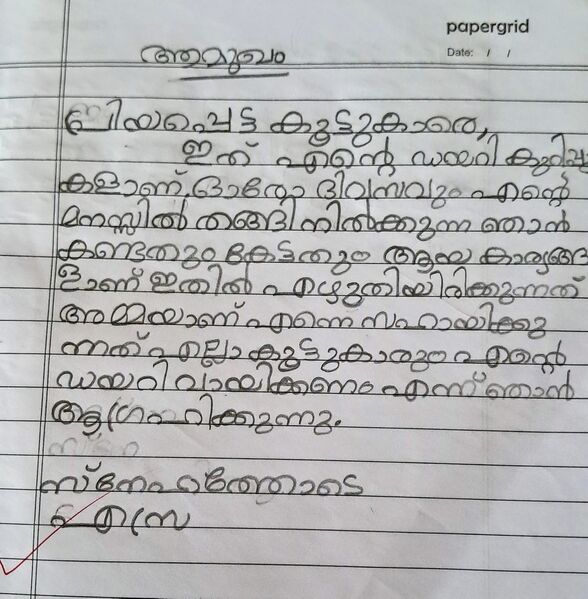 papergrid
Date: / /
ആമുഖം
പ്രിയപ്പെട്ട കൂട്ടുകാരെ,
ഇത് എൻ്റെ ഡയറി കുറിപ്പു
കളാണ്. ഓരോ ദിവസവും എൻ്റെ
മനസ്സിൽ തങ്ങി നിൽക്കുന്ന ഞാൻ
കണ്ടതും കേട്ടതും ആയ കാര്യങ്ങ
ളാണ് ഇതിൽ എഴുതിയിരിക്കുന്നത്
അമ്മയാണ് എന്നെ സഹായിക്കു
ന്നത് എല്ലാ കൂട്ടുകാരും എൻ്റെ
ഡയറി വായിക്കണം എന്ന് ഞാൻ
ആഗ്രഹിക്കുന്നു.
സ്നേഹത്തോടെ